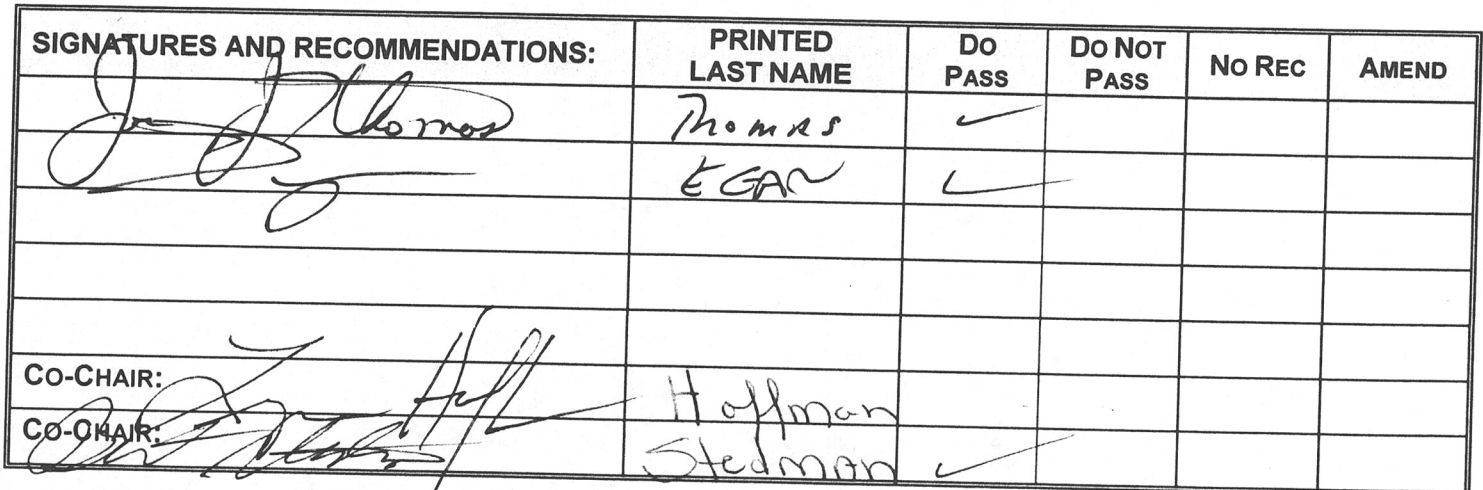 SIGNATURES AND RECOMMENDATIONS: PRINTED LAST NAME DO PASS DO NOT PASS NO REC AMEND
Thomas Thomas ✓
EGAN ✓
CO-CHAIR: Hoffman
CO-CHAIR: Stedman ✓